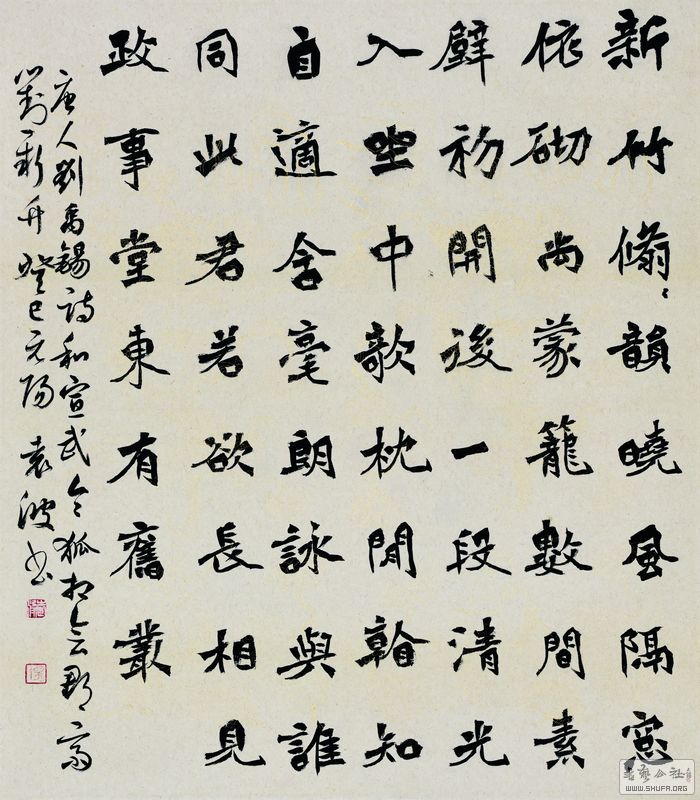 新竹翛〻韻曉風隔窓
依砌尚蒙籠數間素
壁初開後一段清光
入坐中欹枕閒看知
自適含毫朗詠與誰
同此君若欲長相見
政事堂東有舊叢
唐人劉禹錫詩和宣武令狐相公郡齋
對新竹 癸巳元陽 袁波书
書藝公社
WWW.SHUFA.ORG